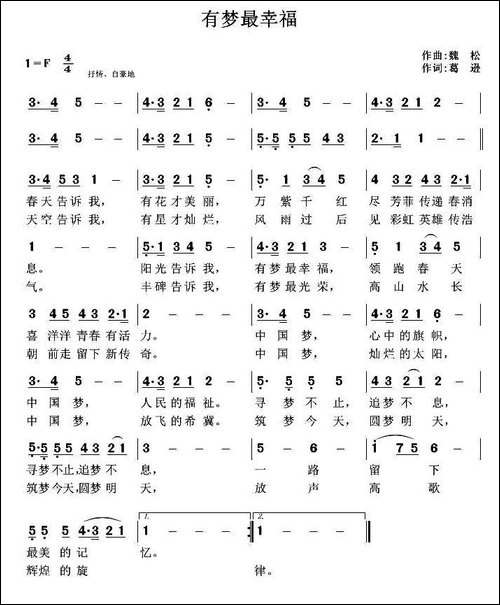 有梦最幸福
1=F 4/4 抒情、自豪地
作曲:魏 松
作词:葛 逊
3· 4 5 - - | 4·3 2 1 6 - | 3· 4 5 - - | 4·3 2 1 2 - |
3· 4 5 - - | 4·3 2 1 5 - | 5·5 5 5 4 3 | 2· 1 1 - ‖
3·4 5 4 5 - | 4·3 2 1 6 - | 5 1 3 4 5 | 4 3 4 5 2·3 1 |
春天告诉我, 有花才美丽, 万 紫 千 红 尽 芳菲 传递 春消
天空告诉我, 有星才灿烂, 风 雨 过 后 见 彩虹 英雄 传浩
1 - - - | 5·1 3 4 5 - | 4·3 2 1 6 - | 5 1 3 4 5 |
息。 阳光告诉我, 有梦最幸福, 领 跑 春 天
气。 丰碑告诉我, 有梦最光荣, 高 山 水 长
3 4 5 4 3 2·1 | 2 - - - | 3· 4 5 - - | 4·3 2 1 6 - |
喜 洋洋 青春 有活 力。 中 国 梦, 心中的旗帜,
朝 前走 留下 新传 奇。 中 国 梦, 灿烂的太阳,
3· 4 5 - - | 4·3 2 1 2 - | 5· 5 5 5 - | 4·3 2 1 6 - |
中 国 梦, 人民的福祉。 寻 梦 不 止, 追梦不 息,
中 国 梦, 放飞的希冀。 筑 梦 今 天, 圆梦明 天,
5·5 5 5 4 3 2 1 | 2 - - - | 3· 4 5 - - | 1 1 7 5 6 |
寻梦不止,追梦不 息, 一 路 留 下
筑梦今天,圆梦明 天, 放 声 高 歌
5 5 5 4·3 2 1 | 1 - - - :‖ 1 - - - ‖
1. 2.
最美 的 记 忆。
辉煌 的 旋 律。